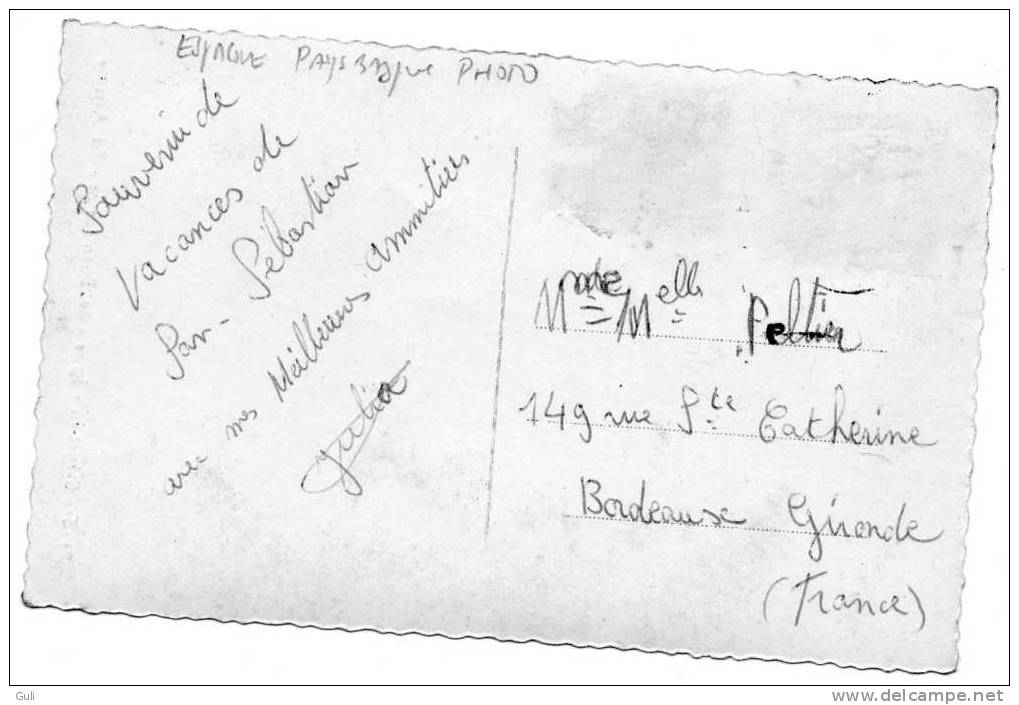 ESPAGNE PAYS BASQUE PHOTO
Souvenir de
Vacances de
San-Sébastian
avec mes Meilleures ammitiées
Julia
Mme/Melle Peltier
149 rue Ste Catherine
Bordeause Gironde
(France)
Guli
www.delcampe.net